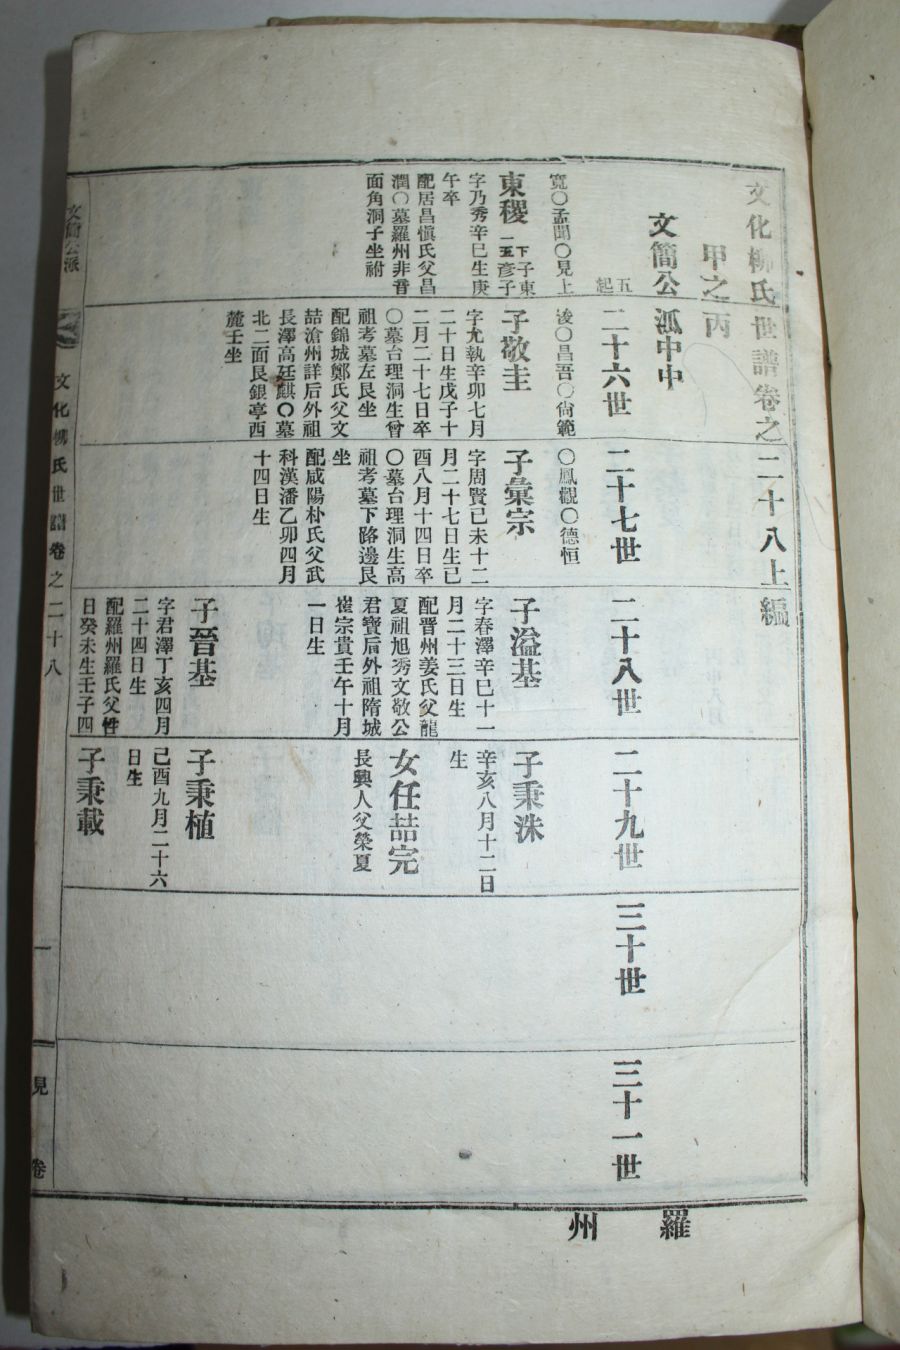 文化柳氏世譜卷之二十八上編
甲之丙
文簡公派中中
五
起
二十六世
二十七世
二十八世
二十九世
三十世
三十一世
寬○孟聞○見上
東稷
下子東
二五彥子
字乃秀辛巳生庚
午卒
配居昌愼氏父昌
潤○墓羅州非音
面角洞子坐祔
後○昌吾○尙範
子敬圭
字允執辛卯七月
二十日生戊子十
二月二十七日卒
○墓台理洞生曾
祖考墓左艮坐
配錦城鄭氏父文
喆滄州詳后外祖
長澤高廷麒○墓
北二面艮銀亭酉
麓壬坐
○鳳觀○德恒
子彙宗
字周賢已未十二
月二十七日生已
酉八月十四日卒
○墓台理洞生高
祖考墓下路邊艮
坐
配咸陽朴氏父武
科漢潘乙卯四月
十四日生
子溢基
字春澤辛巳十一
月二十三日生
配晋州姜氏父龍
夏祖旭秀文敬公
君寶后外祖隋城
崔宗貴壬午十月
一日生
子晉基
字君澤丁亥四月
二十四日生
配羅州羅氏父性
日癸未生壬子四
子秉洙
辛亥八月十二日
生
女任喆完
長興人父榮夏
子秉植
己酉九月二十六
日生
子秉載
文簡公派
文化柳氏世譜卷之二十八
一
見
卷
羅州